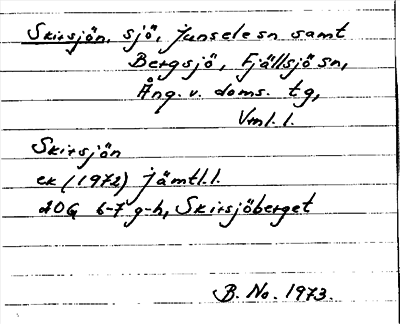 Skirsjön, sjö, Junsele sn samt
Bergsjö, Fjällsjö sn,
Ång. v. doms. tg,
Vml. l.
Skirsjön
ek (1972) Jämtl. l.
20G 6-7 g-h, Skirsjöberget
B. No. 1973.